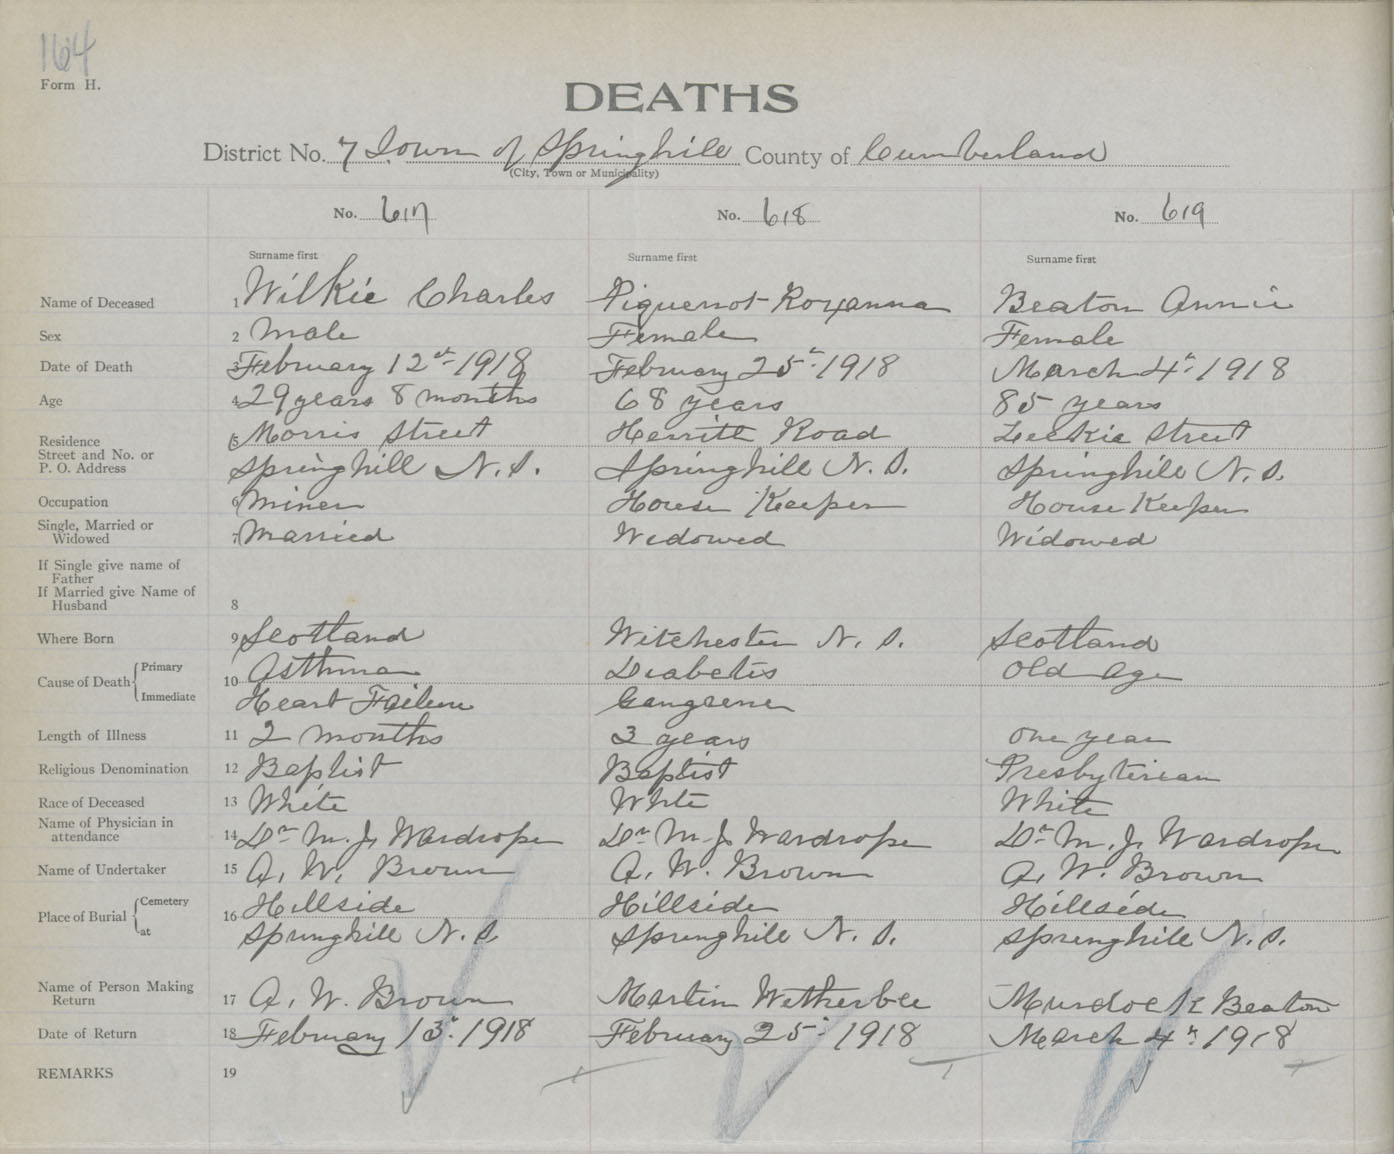 164
Form H.
DEATHS
District No. 7 Town of Springhill County of Cumberland
(City, Town or Municipality)
No. 617 No. 618 No. 619
Surname first Surname first Surname first
Name of Deceased 1 Wilkie Charles Piguenot Roxanna Beaton Annie
Sex 2 Male Female Female
Date of Death 3 February 12th 1918 February 25th 1918 March 4th 1918
Age 4 29 years 8 months 68 years 85 years
Residence 5 Morris Street Herritt Road Leckie Street
Street and No. or
P. O. Address Springhill N. S. Springhill N. S. Springhill N. S.
Occupation 6 Miner House Keeper House Keeper
Single, Married or
Widowed 7 Married Widowed Widowed
If Single give name of
Father
If Married give Name of
Husband 8
Where Born 9 Scotland Witchester N. S. Scotland
Cause of Death Primary 10 Asthma Diabetis Old Age
Immediate Heart Failure Gangrene
Length of Illness 11 2 months 3 years one year
Religious Denomination 12 Baptist Baptist Presbyterian
Race of Deceased 13 White White White
Name of Physician in
attendance 14 Dr M. J. Wardrope Dr M. J. Wardrope Dr M. J. Wardrope
Name of Undertaker 15 A. W. Brown A. W. Brown A. W. Brown
Place of Burial Cemetery 16 Hillside Hillside Hillside
at Springhill N. S. Springhill N. S. Springhill N. S.
Name of Person Making
Return 17 A. W. Brown Martin Wetherbee Murdock Beaton
Date of Return 18 February 13th 1918 February 25th 1918 March 4th 1918
REMARKS 19